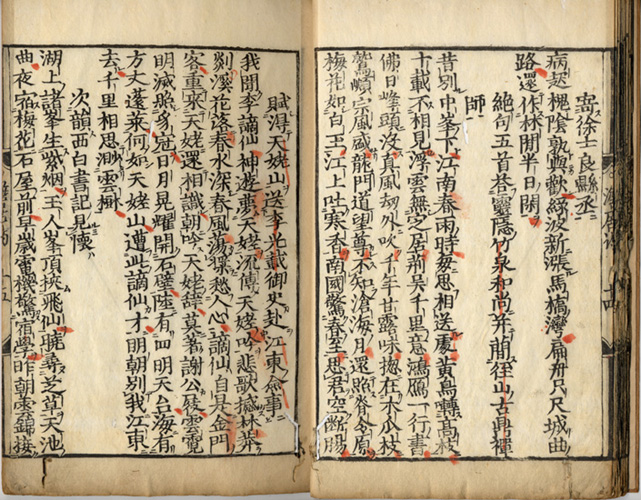 寄徐士良縣丞
病起槐陰孰與歡綠波新漲馬橋灣扁舟只尺城曲
路還作林間半日閒
絕句五首荅靈隱竹泉和尚并簡徑山古鼎禪
師
昔別中峯下江南春雨時思相送處黃鳥囀高枝
十載不相見浮雲無定居荊吳千里意鴻鴈一行書
佛日峰頭沒真風劫外吹千年甘露味捴在木瓜枝
鷲嶺宗風盛龍門道望尊不知滄海月還照脊令原
梅花如白玉江上吐寒香南國驚春至思君空斷腸
十四
賦得天姥山送李光載御史赴江東僉事
我聞李謫仙神遊夢天姥流傳天姥吟悲歌撼林莽
剡溪花落春水深春風蕩漾愁人心謫仙自是金門
客重來天姥還相識朝吟天姥辭莫著謝公屐雲霓
明滅照身冠日月晃耀開石壁陸有四明天台海有
方丈蓬萊何如天姥山遭此謫仙才明朝別我江東
去千里相思渺雲樹
次韻西白書記見懷
湖上諸峯生紫烟玉人峯頂挾飛仙曉尋芝草天池
曲夜宿梅花石屋前早歲電機驚宿學昨朝雲錦接
十五